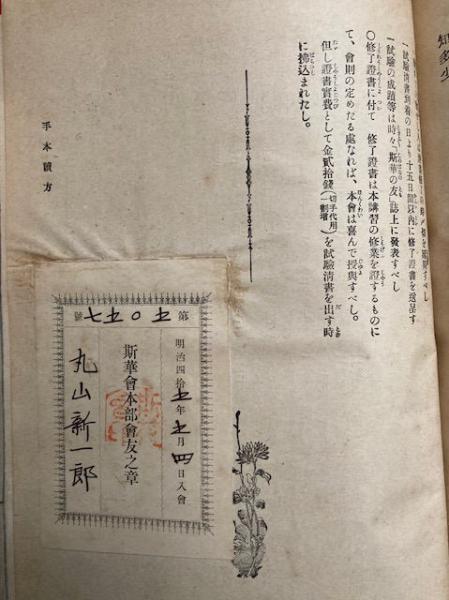 知多少
一試驗清書到着の日より十五日間以內に修了證書を送呈す
一試驗の成蹟等は時々「斯華の友」誌上に發表すべし
〇修了證書に付て 修了證書は本講習の修業を證するものに
て、會則の定めたる處なれば、本會は喜んで授與すべし。
但し證書實費として金貳拾錢(切手代用一割增)を試驗淸書を出す時
に拂込まれたし。
手本讀方
第五〇五七號
明治四拾五年五月四日入會
斯華會本部會友之章
丸山新一郎